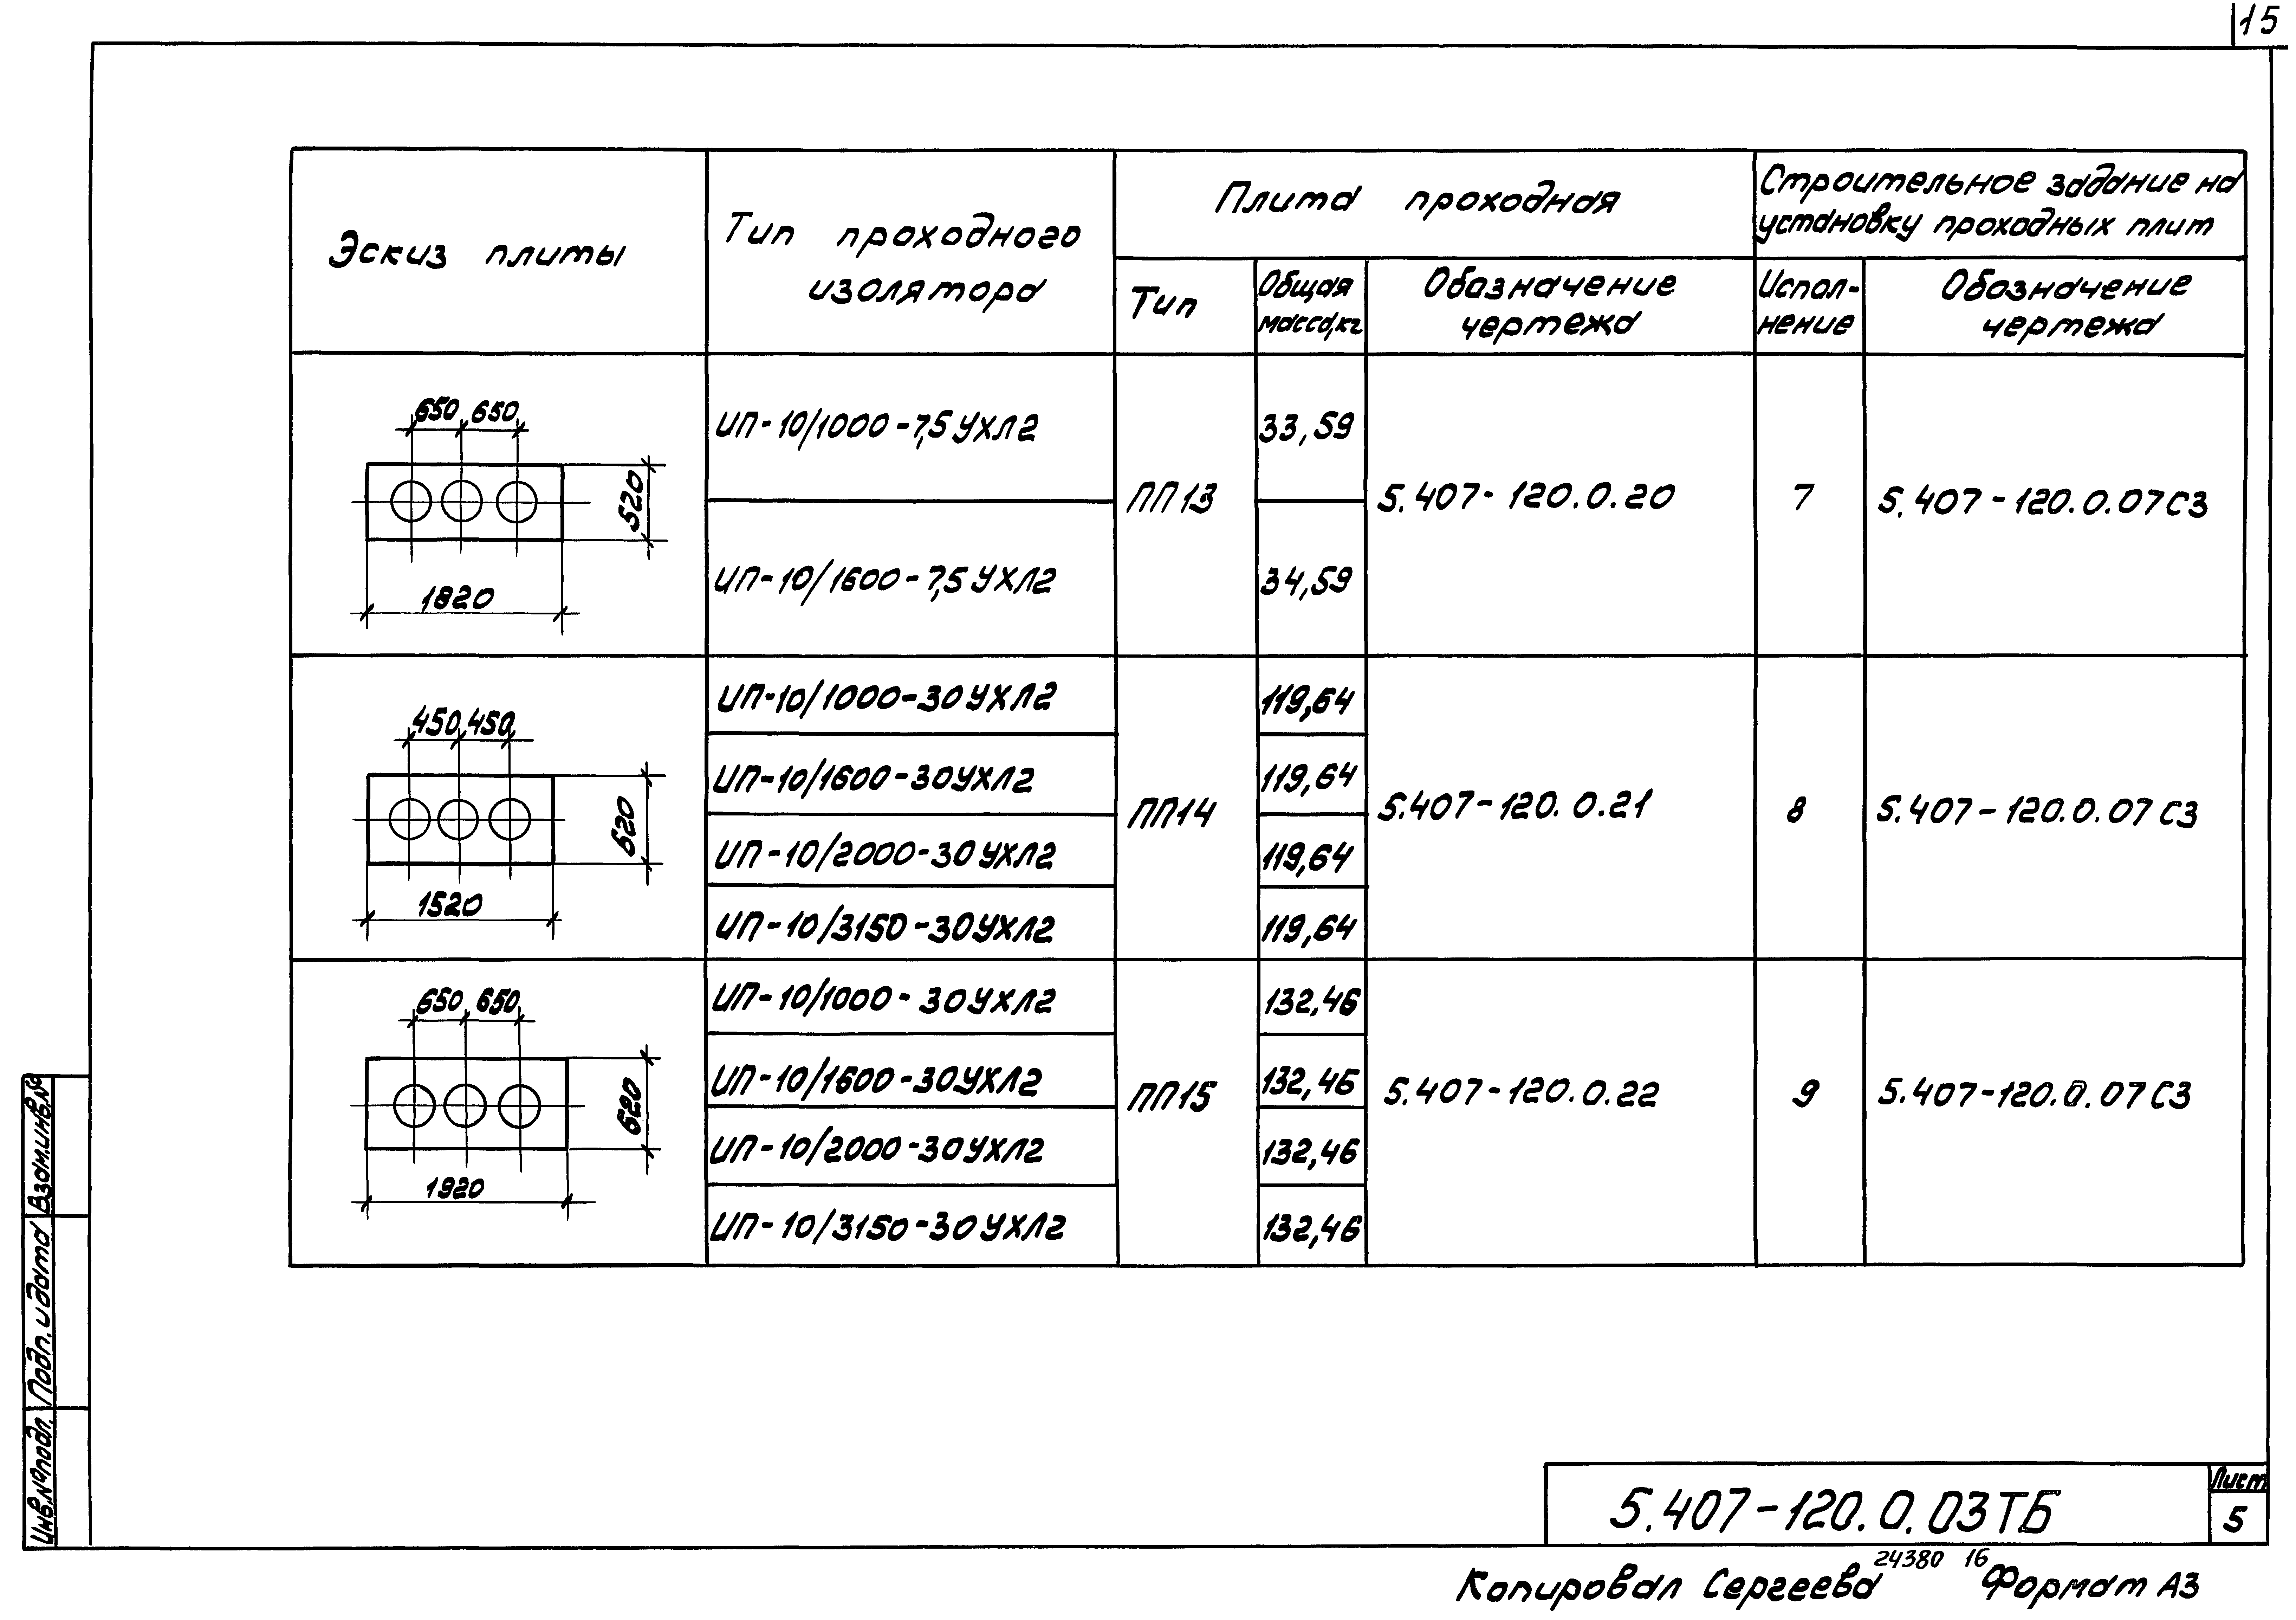 15
Эскиз плиты
Тип проходного
изолятора
Плита проходная
Строительное задание на
установку проходных плит
Тип
Общая
масса,кг
Обозначение
чертежа
Испол-
нение
Обозначение
чертежа
650 650
520
1820
ИП-10/1000-7,5УХЛ2
33,59
ИП-10/1600-7,5УХЛ2
34,59
ПП13
5.407-120.0.20
7
5.407-120.0.07СЗ
450 450
620
1520
ИП-10/1000-30УХЛ2
119,64
ИП-10/1600-30УХЛ2
119,64
ИП-10/2000-30УХЛ2
119,64
ИП-10/3150-30УХЛ2
119,64
ПП14
5.407-120.0.21
8
5.407-120.0.07СЗ
650 650
620
1920
ИП-10/1000-30УХЛ2
132,46
ИП-10/1600-30УХЛ2
132,46
ИП-10/2000-30УХЛ2
132,46
ИП-10/3150-30УХЛ2
132,46
ПП15
5.407-120.0.22
9
5.407-120.0.07СЗ
Взам.инв.№
Подп. и дата
Инв.№подл.
5.407-120.0.03ТБ
Лист
5
24380 16
Копировал Сергеева Формат А3